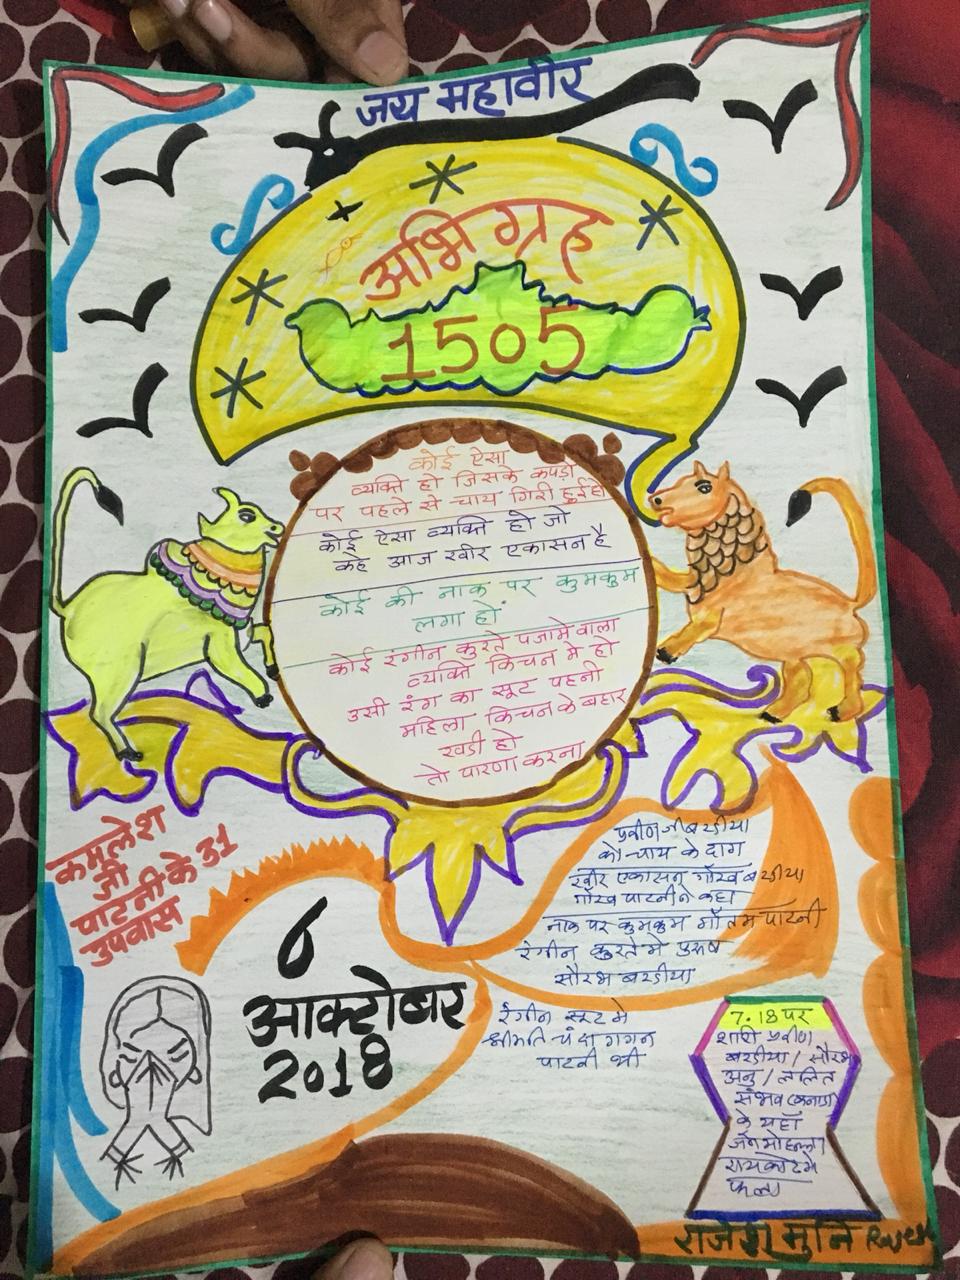 जय महावीर
अभिग्रह
1505
कोई ऐसा
व्यक्ति हो जिसके कपड़ो
पर पहले से चाय गिरी हुई हो
कोई ऐसा व्यक्ति हो जो
कहे आज खीर एकासन है
कोई की नाक पर कुमकुम
लगा हो
कोई रंगीन कुरते पजामे वाला
व्यक्ति किचन मे हो
उसी रंग का सूट पहनी
महिला किचन के बहार
खडी हो
तो पारणा करना
कमलेश
जी
पाटनी के 31
उपवास
6
आक्टोबर
2018
प्रवीण जी बरडीया
को चाय के दाग
खीर एकासन गौरव बरडीया
गौरव पाटनी ने कहा
नाक पर कुमकुम गौतम पाटनी
रंगीन कुरते मे पुरूष
सौरभ बरडीया
रंगीन सूट मे
श्रीमति चंदा गगन
पाटनी थी
7.18 पर
शादी प्रवीण
बरडीया / सौरभ
अनु / ललित
संभव
के यहाँ
जैन मोहल्ला
रायकोट मे
फला
राजेश मुनि